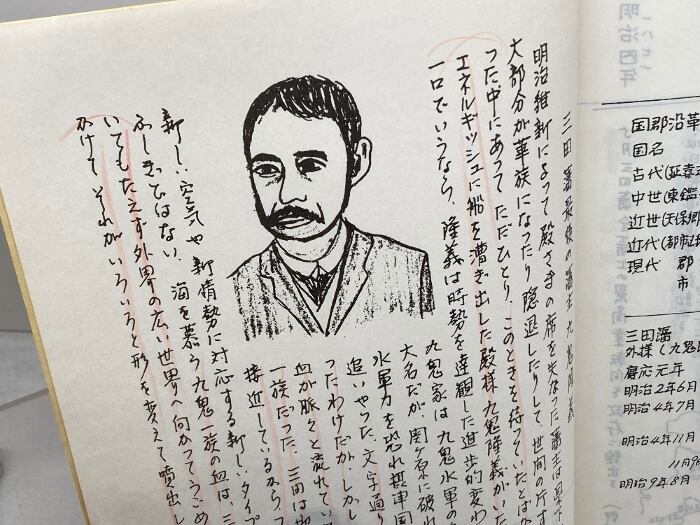 三田藩最後の藩主 九鬼隆義
明治維新によって殿さまの席を失なった藩主は
大部分が華族になったり隠退したりして、世間の片す
った中にあって ただひとり、このときを待っていたとば
エネルギッシュに船を漕き出した殿様 九鬼隆義がいた
一口でいうなら、隆義は時勢を達観した進歩的変わ
九鬼家は 九鬼水軍の
大名だが、関ヶ原に破れ
水軍力を恐れ摂津国
追いやった。文字通り
ったわけだが、しかし
血が脈々と流れてい
一族だった。三田は
接近しているから、
新しい空気や新情勢に対応する新しいタイプ
ふしぎではない。海を慕う九鬼一族の血は、三
いてもたえず外界の広い世界へ向かってうごめ
かけて それがいろいろと形を変えて噴出し
一八七一
明治四年
国郡沿革
国名
古代(延喜
中世(東鑑
近世(天保郷
近代(都市
現代 郡
市
三田藩
外様(九鬼
慶応元年
明治2年6月
明治4年7月
明治4年11月
11月
明治9年8月